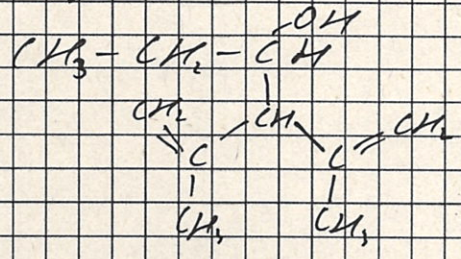 OH
CH₃ – CH₂ – CH
CH₂ CH CH₂
C C
CH₃ CH₃